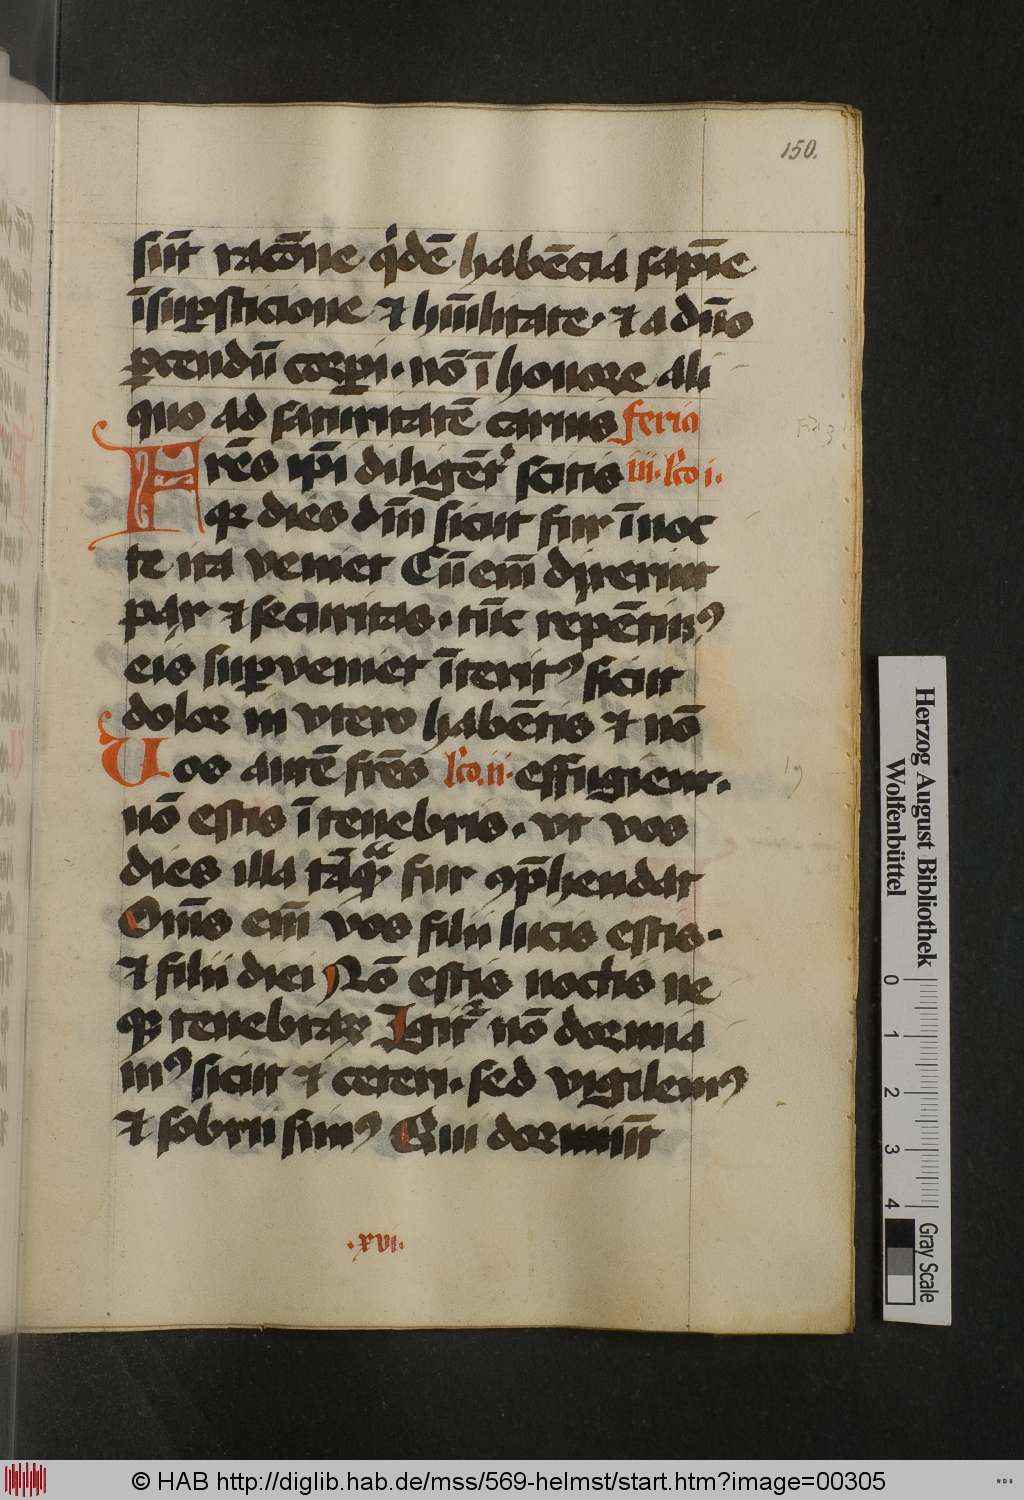 150.
sūt racōne q̇dē habēcia sapīe
ī suꝑsticione ⁊ hūilitate · ⁊ a dūo
ꝑcendū corꝑi · nō ī honore ali
quo ad saturitatē carnis feria
Frēs ip̄i diligēt̾ scitis iii · lc̄o i ·
qꝛ dies dn̄i sicut fur ī noc
te ita veniet Cū em̄ dixerint
pax ⁊ securitas · tūc repētinꝰ
eis suꝑveniet īteritꝰ sicut
dolor in vtero habētis ⁊ nō
Uos autē frēs lc̄o. ii · effugient ·
nō estis ī tenebris · vt vos
dies illa tāqᷓ fur ꝯp̄hendat
Om̄s em̄ vos filii lucis estis ·
⁊ filii diei Nō estis noctis ne
qꝫ tenebraꝝ Igitᷓ nō dormia
mꝰ sicut ⁊ ceteri · sed vigilemꝰ
⁊ sobrii simꝰ Qui dormiūt
· xvi ·
Herzog August Bibliothek
Wolfenbüttel
0 1 2 3 4
Gray Scale
© HAB http://diglib.hab.de/mss/569-helmst/start.htm?image=00305